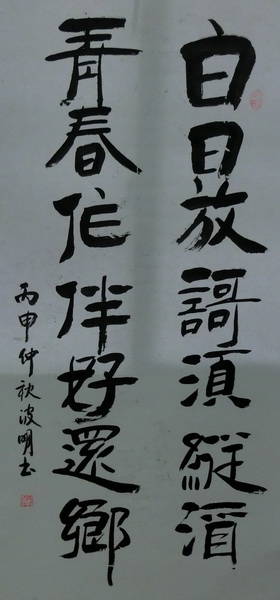 白日放謌湏縱酒
青春作伴好還鄉
丙申仲秋波明书